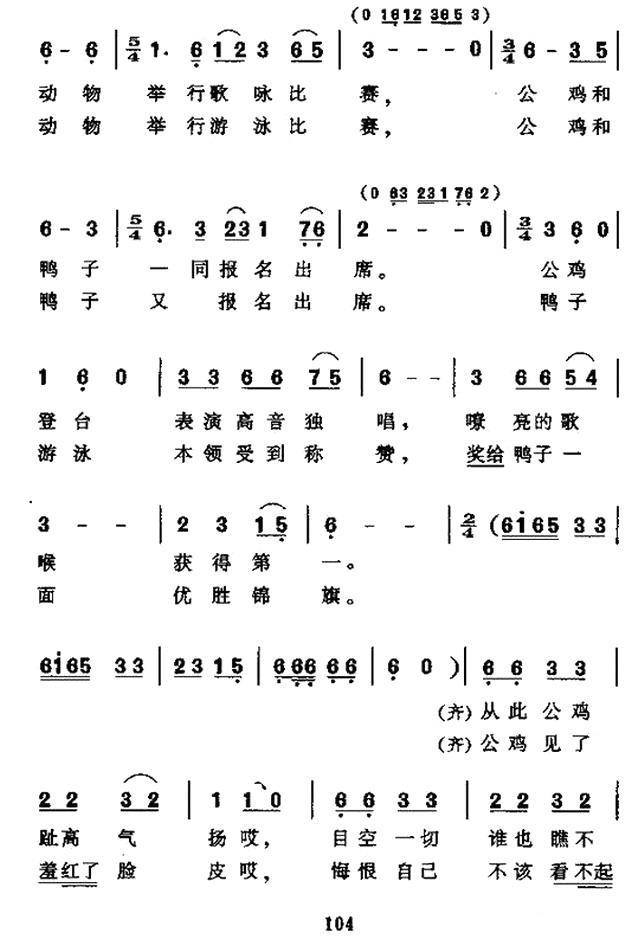 (0 1612 3635 3)
6 - 6 | 5/4 1. 6 12 3 65 | 3 - - 0 | 3/4 6 - 35 |
动物 举行歌咏比 赛， 公鸡和
动物 举行游泳比 赛， 公鸡和
(0 63 231 76 2)
6 - 3 | 5/4 6. 3 23 1 76 | 2 - - 0 | 3/4 3 6 0 |
鸭子 一同报名出 席。 公鸡
鸭子 又 报名出 席。 鸭子
1 6 0 | 33 66 75 | 6 - - | 3 66 54 |
登台 表演高音独 唱， 嘹亮的歌
游泳 本领受到称 赞， 奖给鸭子一
3 - - | 2 3 15 | 6 - - | 2/4 (6165 33 |
喉 获得第 一。
面 优胜锦 旗。
6165 33 | 23 15 | 666 66 | 6 0 ) | 66 33 |
(齐)从此公鸡
(齐)公鸡见了
22 32 | 1 10 | 66 33 | 22 32 |
趾高气 扬哎， 目空一切 谁也瞧不
羞红了脸 皮哎， 悔恨自己 不该看不起
104